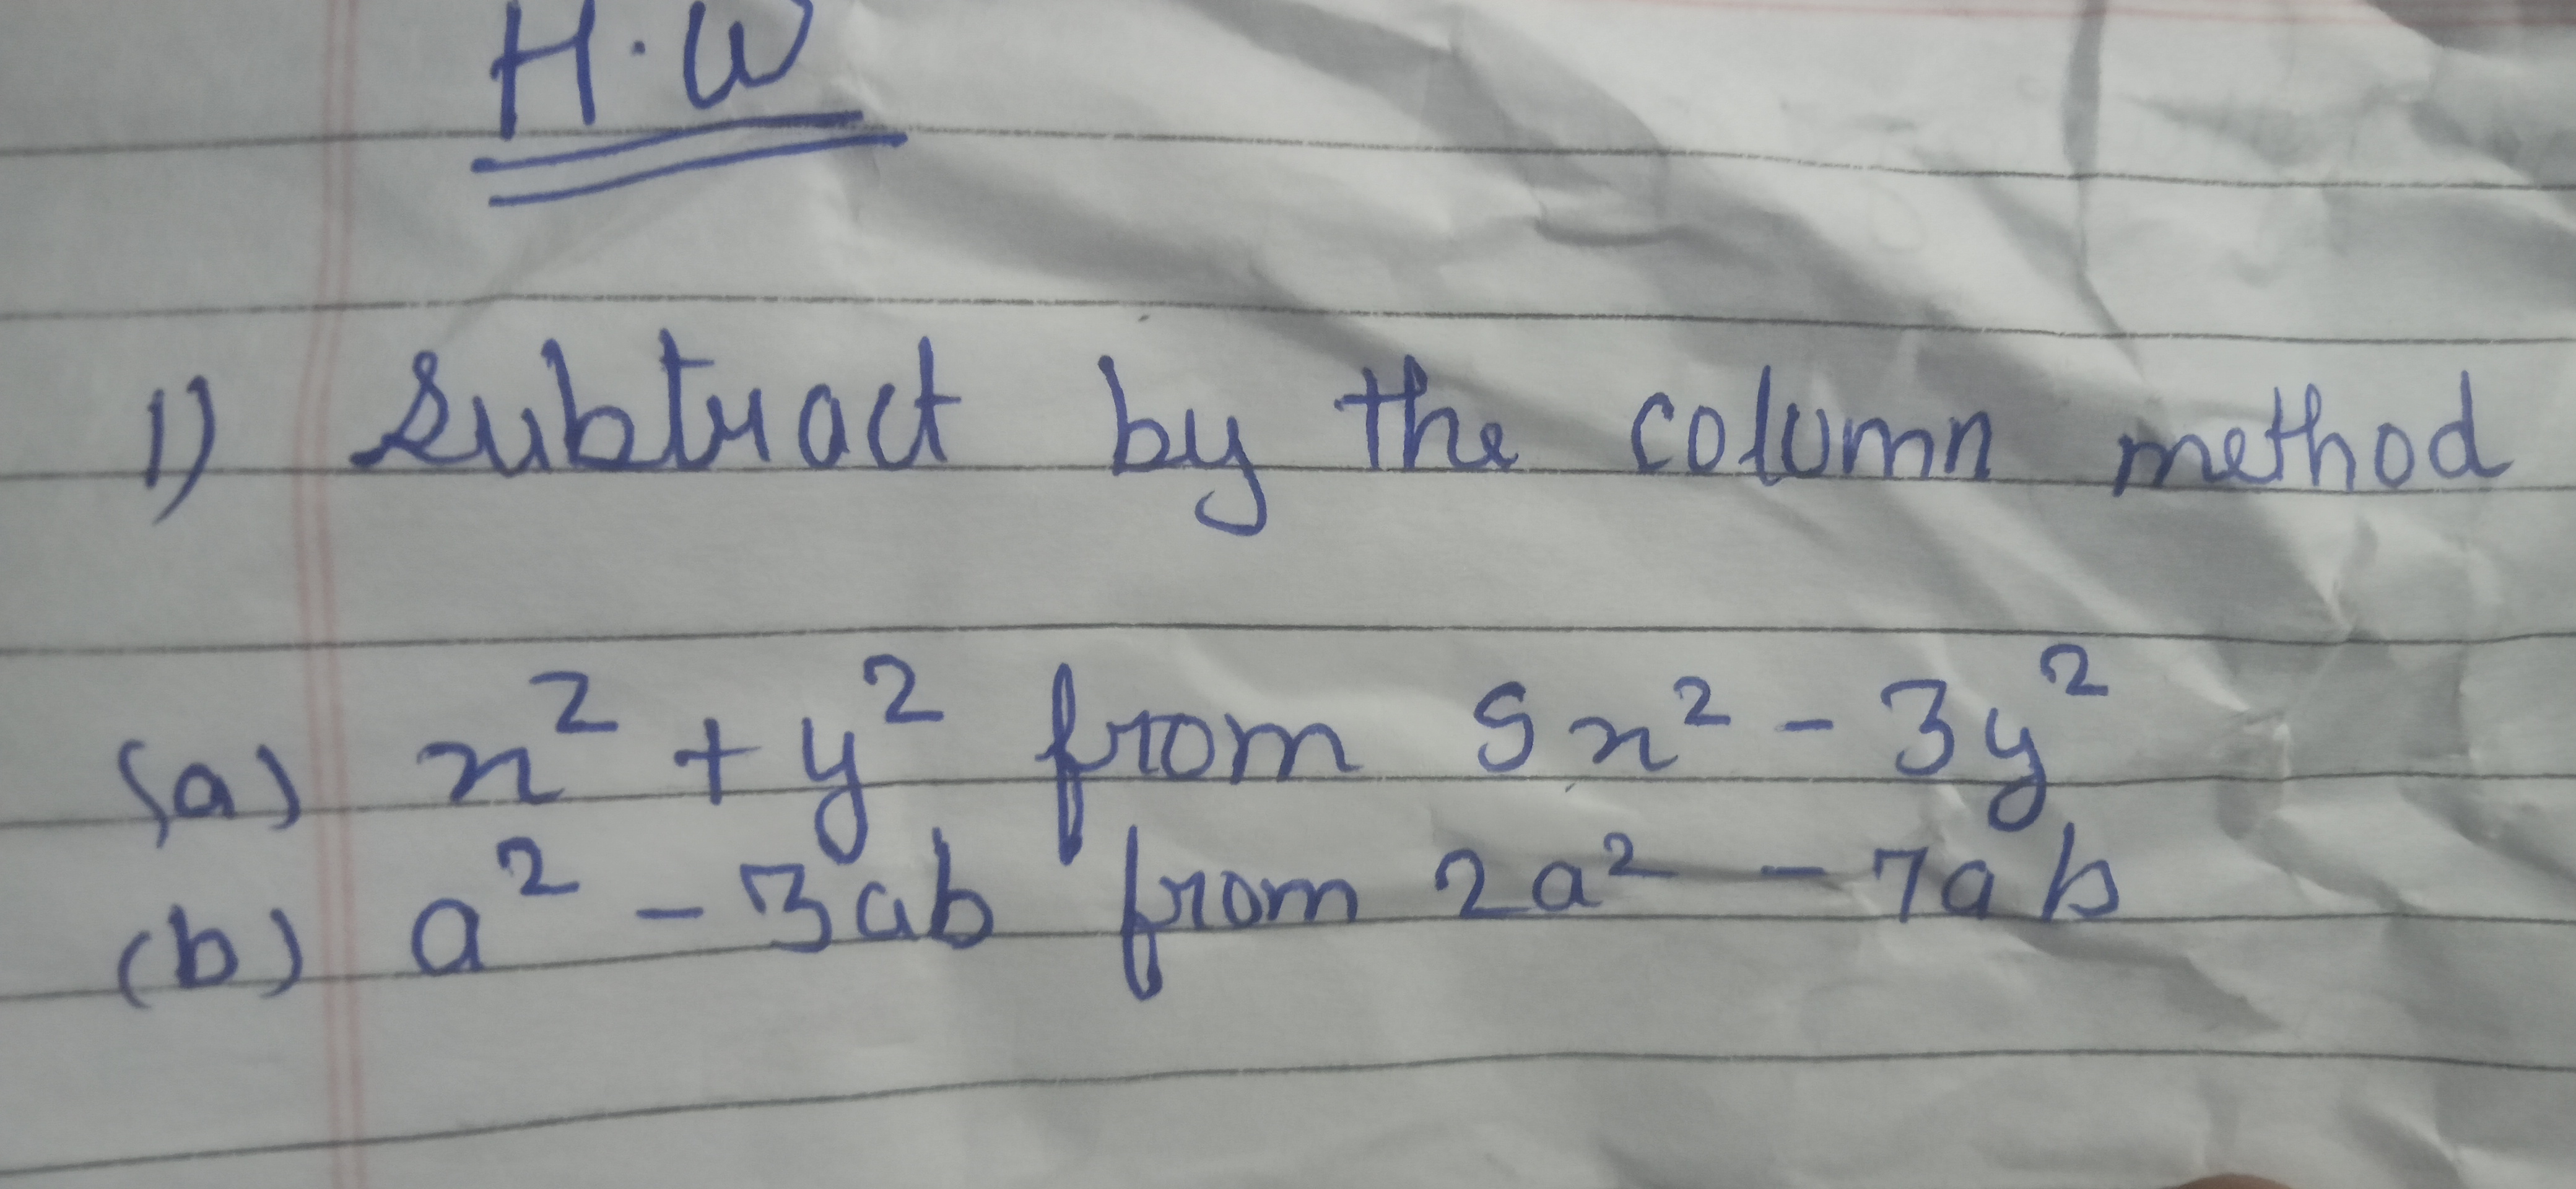 H.W
1) Subtract by the column method
(a) x² + y² from 5x² - 3y²
(b) a² - 3ab from 2a² - 7ab